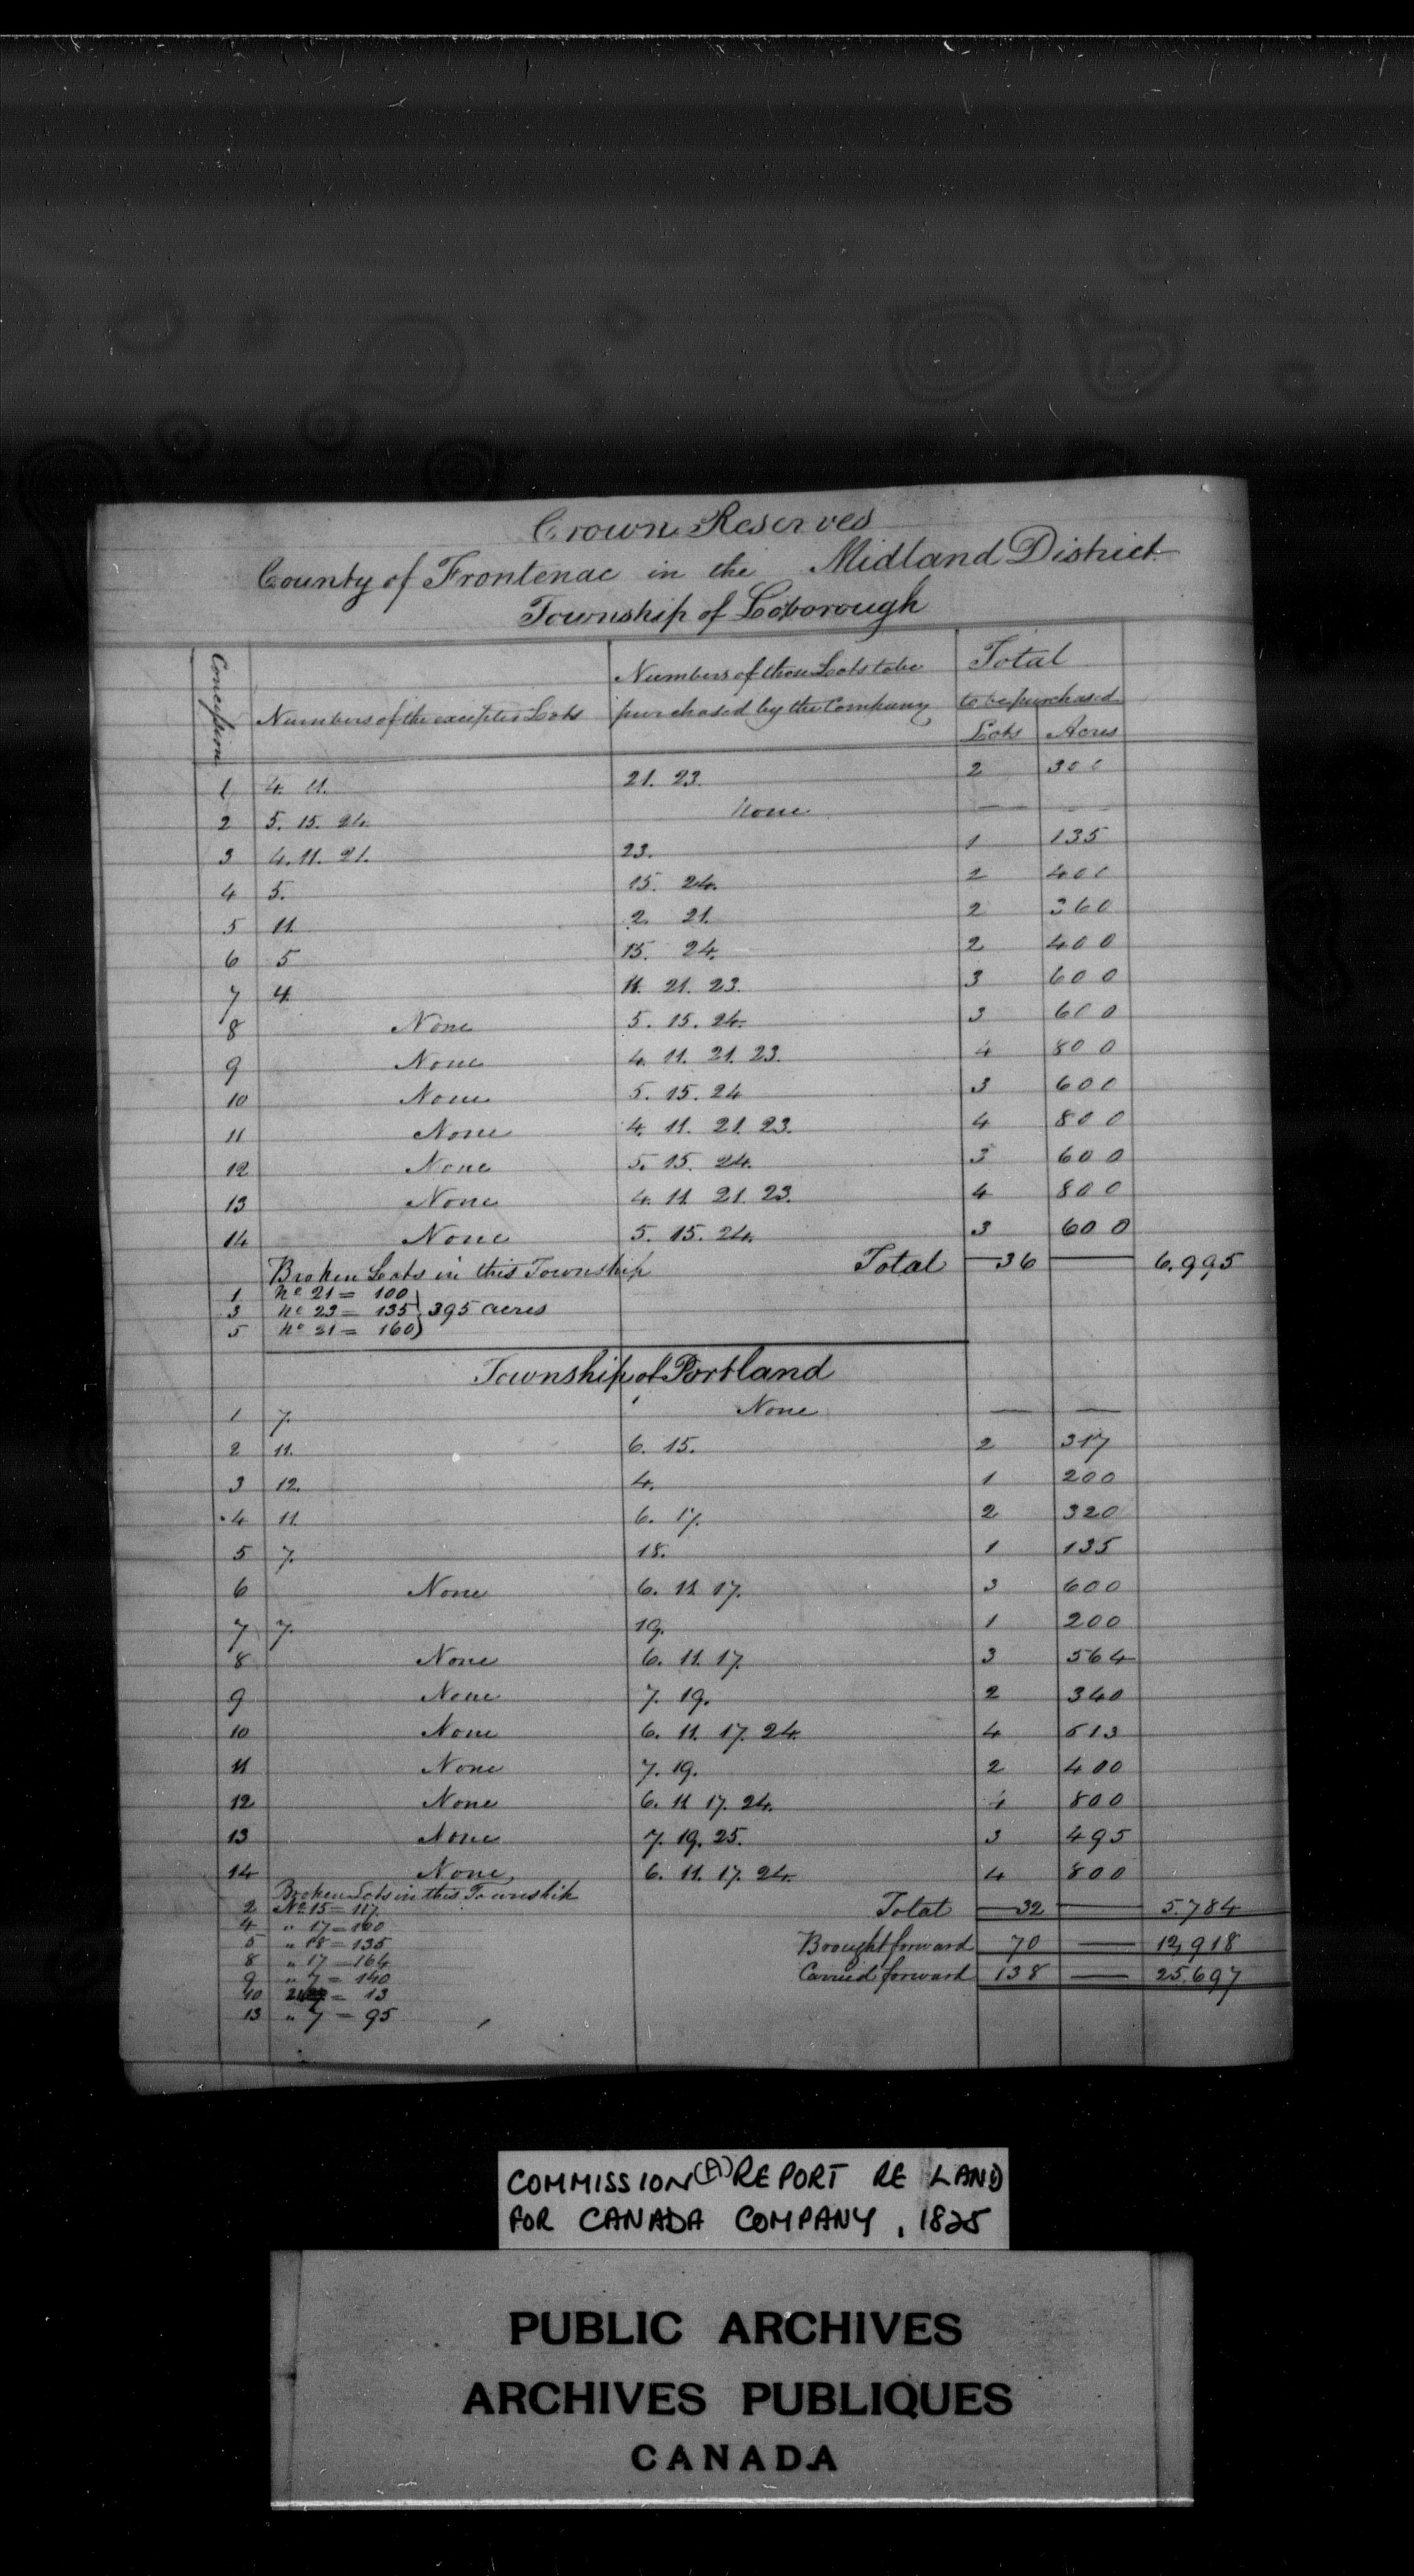 Crown Reserves
County of Frontenac in the Midland District
Township of Loborough
Concession
Numbers of the excepted Lots
Numbers of those Lots to be
purchased by the Company
Total
to be purchased
Lots Acres
1 4. 11. 21. 23. 2 300
2 5. 15. 24. None — —
3 4. 11. 21. 23. 1 135
4 5. 15. 24. 2 400
5 11. 2 21. 2 360
6 5 15. 24. 2 400
7 4 11. 21. 23. 3 600
8 None 5. 15. 24. 3 600
9 None 4. 11. 21. 23. 4 800
10 None 5. 15. 24 3 600
11 None 4. 11. 21. 23. 4 800
12 None 5. 15. 24. 3 600
13 None 4. 11. 21. 23. 4 800
14 None 5. 15. 24. 3 600
Broken Lots in this Township Total — 36 — 6,995
1 No 21 = 100
3 No 23 = 135 } 395 acres
5 No 21 = 160
Township of Portland
1 7. None — —
2 11. 6. 15. 2 317
3 12. 4. 1 200
4 11. 6. 17. 2 320
5 7. 18. 1 135
6 None 6. 11. 17. 3 600
7 7. 19. 1 200
8 None 6. 11. 17. 3 564
9 None 7. 19. 2 340
10 None 6. 11. 17. 24. 4 613
11 None 7. 19. 2 400
12 None 6. 11. 17. 24. 4 800
13 None 7. 19. 25. 3 495
14 None 6. 11. 17. 24. 4 800
Broken Lots in this Township
2 No 15 = 117 Total — 32 — 5,784
4 " 17 = 120
5 " 18 = 135 Brought forward 70 — 12,918
8 " 17 = 164
9 " 7 = 140 Carried forward 138 — 25,697
10 24 = 13
13 " 7 = 95
COMMISSION (A) REPORT RE LAND
FOR CANADA COMPANY, 1825
PUBLIC ARCHIVES
ARCHIVES PUBLIQUES
CANADA